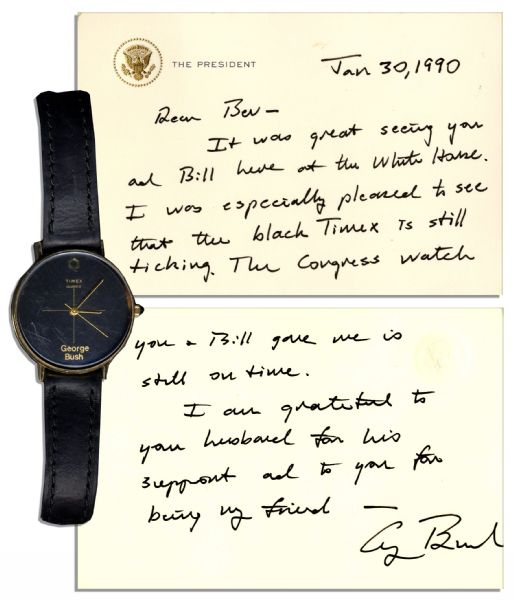 THE PRESIDENT
Jan 30, 1990
Dear Bev—
It was great seeing you
and Bill here at the White House.
I was especially pleased to see
that the black Timex is still
ticking. The Congress watch
TIMEX
QUARTZ
George
Bush
you & Bill gave me is
still on time.
I am grateful to
your husband for his
support and to you for
being my friend —
Gg Bush